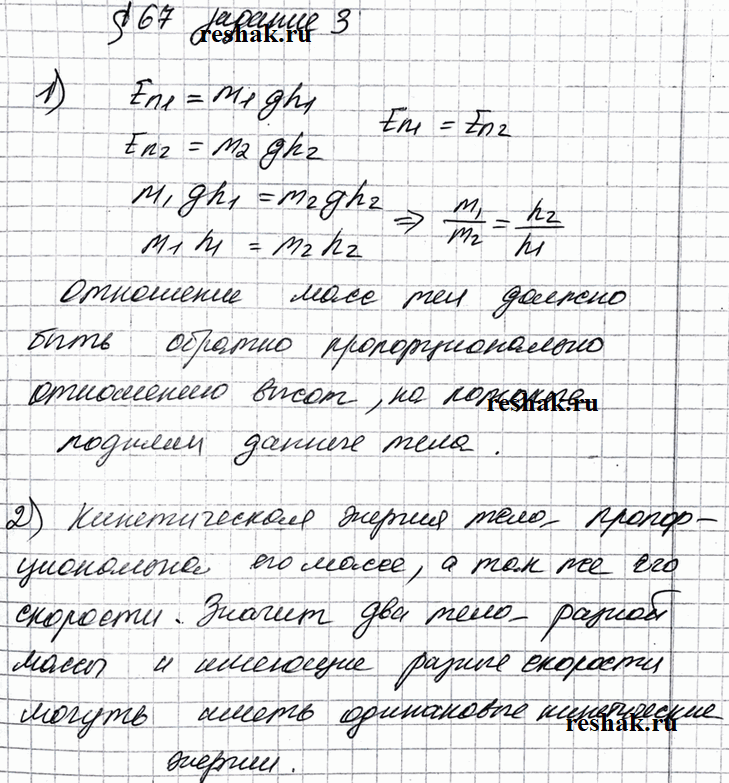 § 67 задание 3
reshak.ru
1) Eп1 = m1 gh1
Eп1 = Eп2
Eп2 = m2 gh2
m1 gh1 = m2 gh2
m1 h1 = m2 h2 ⇒ m1/m2 = h2/h1
Отношение масс тел должно
быть обратно пропорционально
отношению высот, на которые
reshak.ru
подняли данные тела.
2) Кинетическая энергия тела пропор-
циональна его массе, а так же его
скорости. Значит два тела разной
массы и имеющие разные скорости
могуть иметь одинаковые кинетические
reshak.ru
энергии.